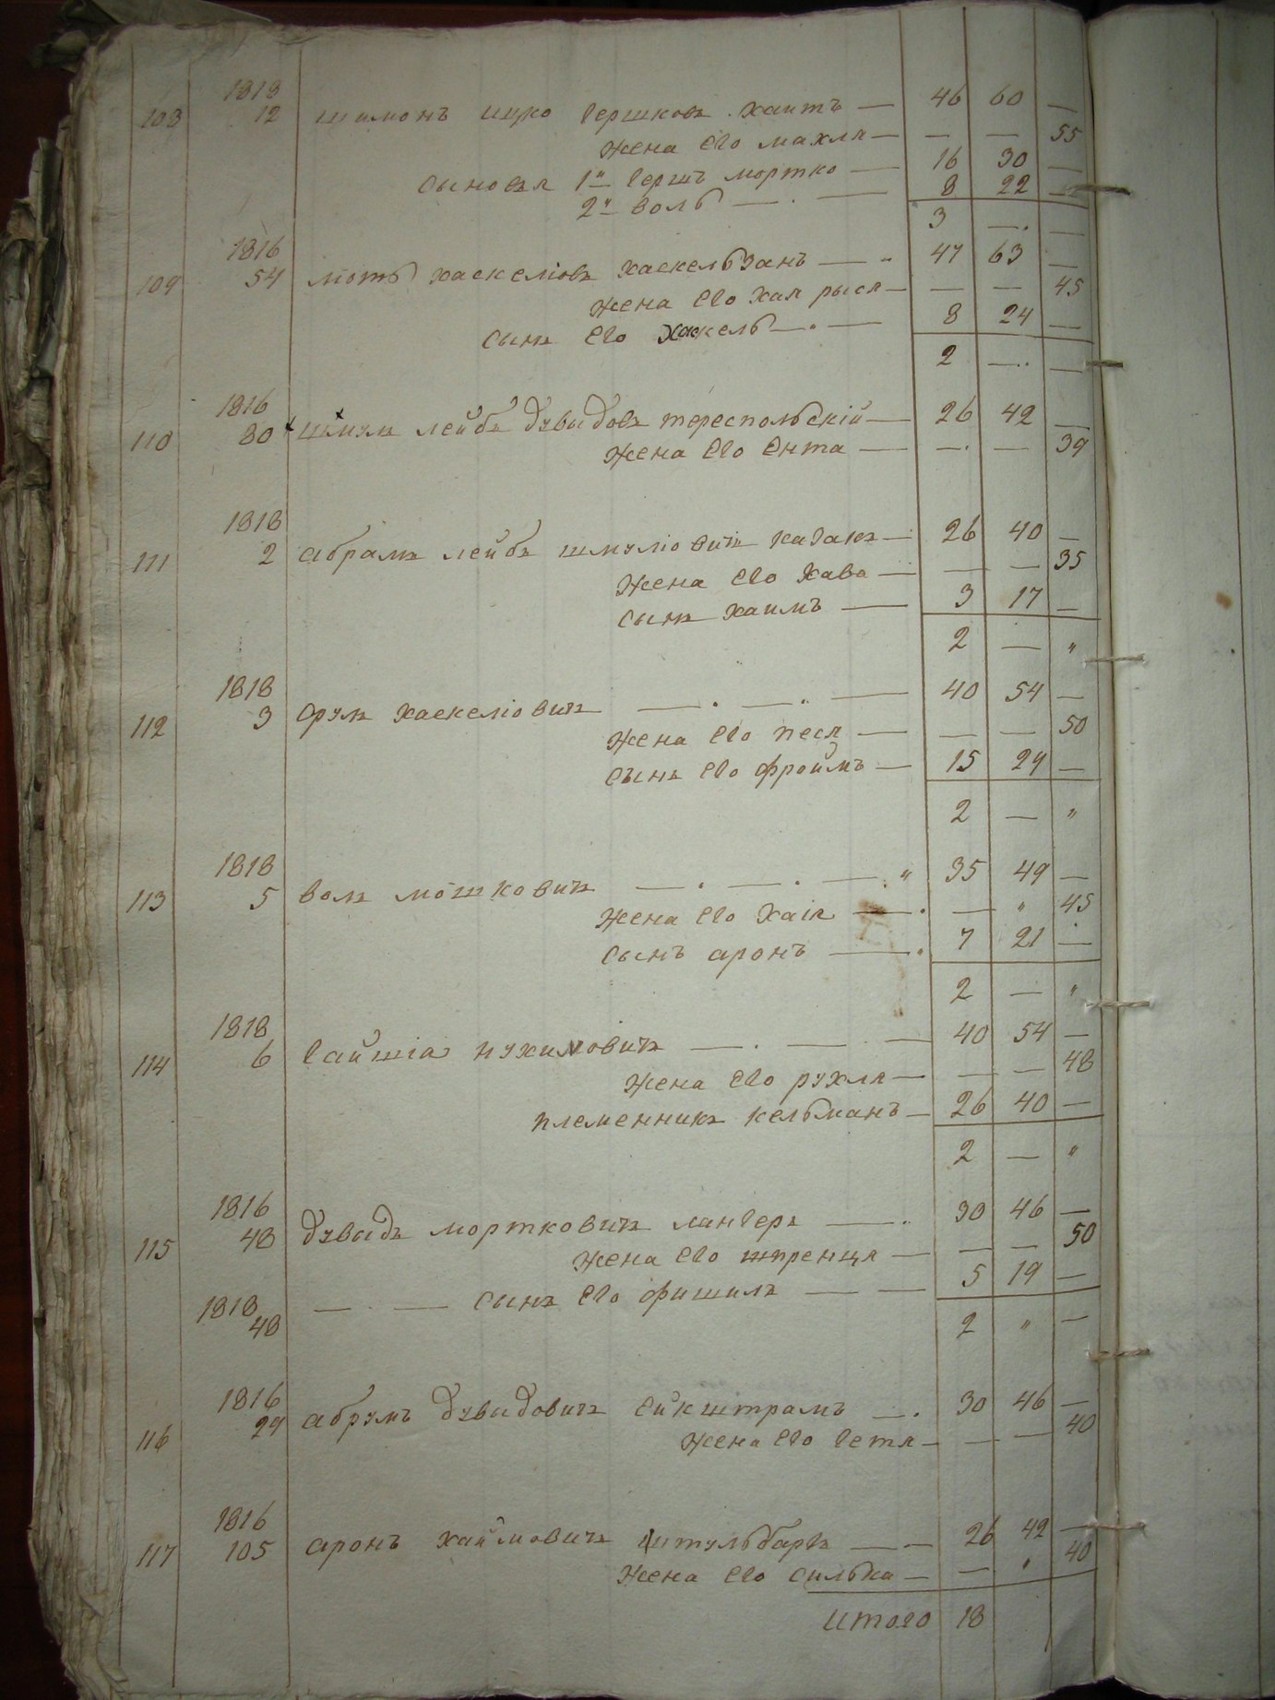 1818
108 12 шимонъ ицко Гершковъ Хаитъ — 46 60 —
жена его махля — — — 55
сыновья 1й Гершъ мортко — 16 30 —
2й воль — . — 8 22 —
3 — . —
1816
109 54 мотъ хаскеліовъ хаскельзанъ — " 47 63 —
жена его Хая рыся — — — 45
сынъ его Хаскель — . — 8 24 —
2 — . —
1816
110 80 шмулъ лейбъ дувыдовъ тереспольскій — 26 42 —
жена его Ента — — . — 39
1818
111 2 абрамъ лейбъ шмуліовичъ казакъ — 26 40 —
жена его Хава — — — 35
сынъ хаимъ — 3 17 —
2 — "
1818
112 3 срулъ хаскеліовичъ — . — .. — 40 54 —
жена его песя — — — 50
сынъ его фроимъ — 15 29 —
2 — "
1818
113 5 волъ мошковичъ — . — . — . " 35 49 —
жена его Хаія — . — " 45
сынъ аронъ — . 7 21 —
2 — "
1818
114 6 нухимовичъ — . — . — 40 54 —
жена его рухля — — — 48
племенникъ кельманъ — 26 40 —
2 — "
1816
115 48 дувыдъ мортковичъ лангеръ — . 30 46 —
жена его штренця — — — 50
1818 — . — сынъ его фишилъ — — 5 19 —
48 2 " —
1816
116 29 абрумъ дувыдовичъ Ейкштрамъ — . 30 46 —
жена его гетля — — — 40
1816
117 105 аронъ хаймовичъ штульбаръ — — 26 42 —
жена его силька — — " 40
итого 18